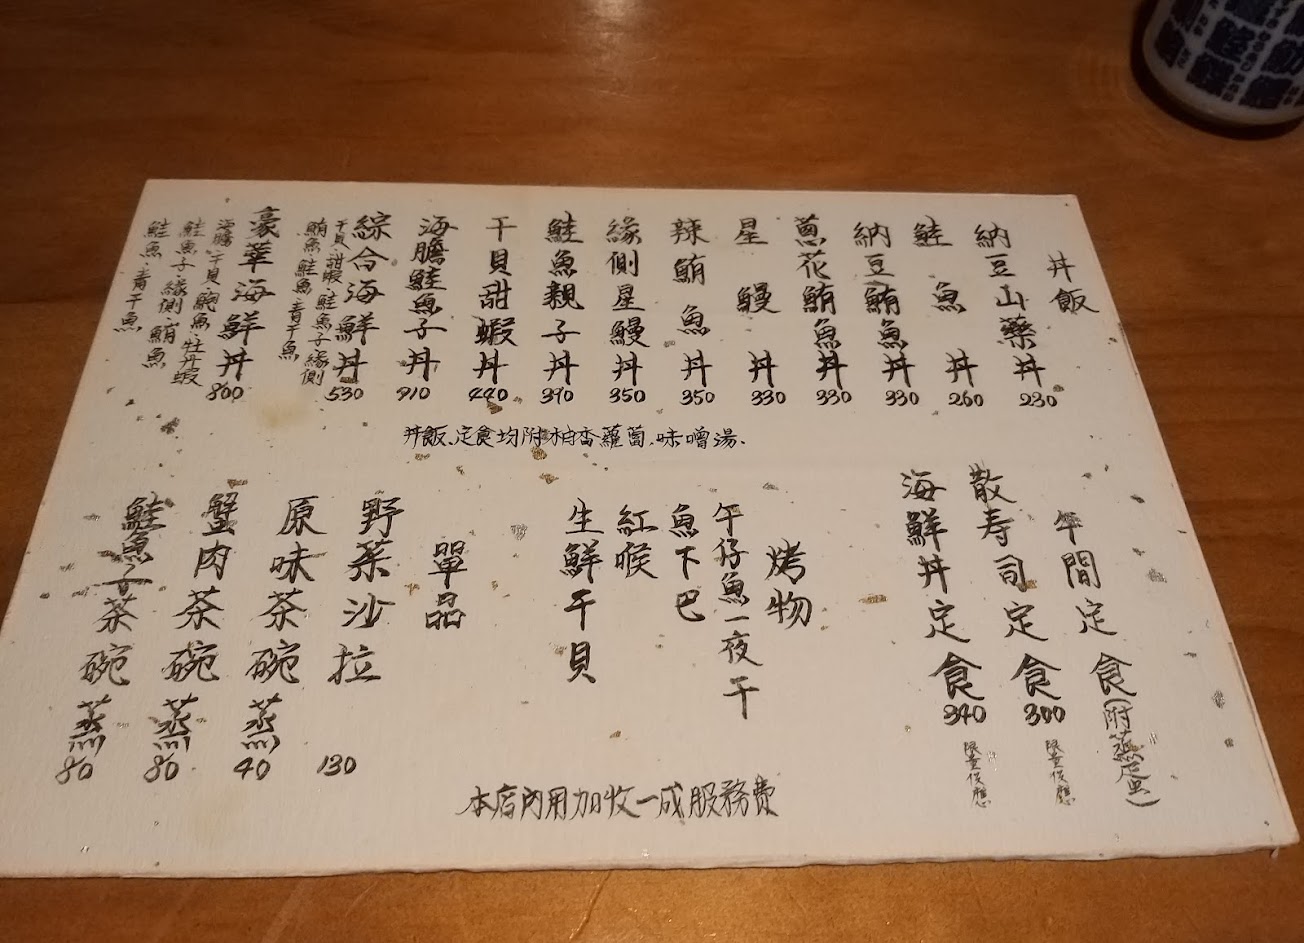 丼飯
納豆山藥丼 230
鮭魚丼 260
納豆鮪魚丼 330
蔥花鮪魚丼 330
星鰻丼 330
辣鮪魚丼 350
緣側星鰻丼 350
鮭魚親子丼 390
干貝甜蝦丼 440
海膽鮭魚子丼 910
綜合海鮮丼 530
干貝.甜蝦.鮭魚子.緣側
鮪魚.鮭魚.青干魚
濠華海鮮丼 800
海膽.干貝.鮑魚.牡丹蝦
鮭魚子.緣側.鮪魚
鮭魚.青干魚
丼飯、定食均附柚香蘿蔔.味噌湯.
午間定食(附蒸蛋)
散寿司定食 300 限量供應
海鮮丼定食 340 限量供應
烤物
午仔魚一夜干
魚下巴
紅喉
生鮮干貝
單品
野菜沙拉 130
原味茶碗蒸 40
蟹肉茶碗蒸 80
鮭魚子茶碗蒸 80
本店內用加收一成服務費